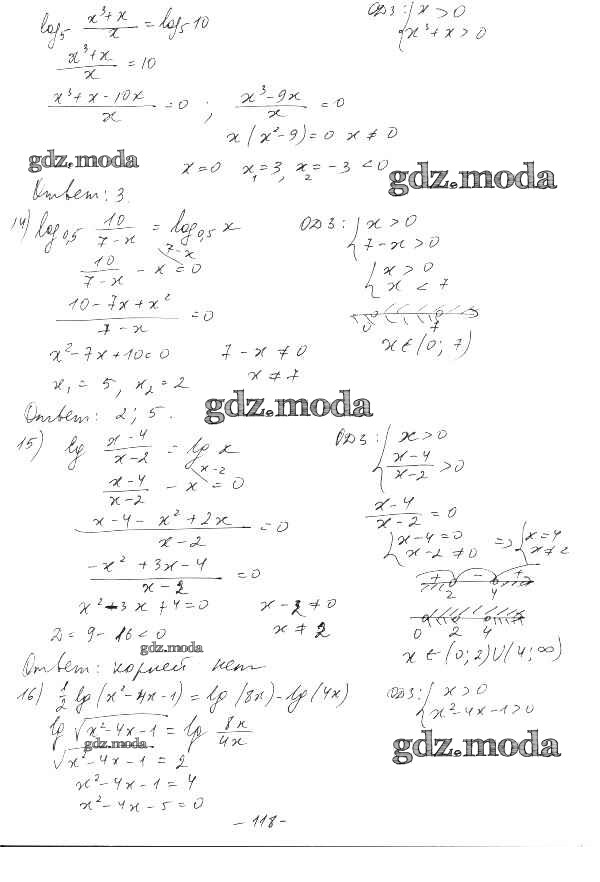 log₅ (x³+x)/x = log₅ 10    ОДЗ: { x > 0
{ x³+x > 0
(x³+x)/x = 10
(x³+x-10x)/x = 0 ; (x³-9x)/x = 0
x(x²-9)=0 x ≠ 0
gdz.moda
x=0 x₁=3, x₂=-3 <0
gdz.moda
Ответ: 3.
14) log₀,₅ 10/(7-x) = log₀,₅ x    ОДЗ: { x > 0
{ 7-x > 0
10/(7-x) - x = 0    7-x
{ x > 0
{ x < 7
(10-7x+x²)/(7-x) = 0
0 7
x²-7x+10=0    7-x ≠ 0    x ∈ (0; 7)
x₁ = 5, x₂ = 2    x ≠ 7
Ответ: 2; 5.
gdz.moda
15) lg (x-4)/(x-2) = lg x    ОДЗ: { x > 0
{ (x-4)/(x-2) > 0
(x-4)/(x-2) - x = 0    x-2
(x-4)/(x-2) = 0
(x-4-x²+2x)/(x-2) = 0
{ x-4=0 => { x=4
{ x-2≠0 { x≠2
(-x²+3x-4)/(x-2) = 0
+ - +
2 4
x²-3x+4=0    x-2 ≠ 0
0 2 4
D = 9-16 < 0    x ≠ 2
gdz.moda
x ∈ (0; 2)∪(4; ∞)
Ответ: корней нет
16) 1/2 lg(x²-4x-1) = lg(8x) - lg(4x)    ОДЗ: { x > 0
{ x²-4x-1 > 0
lg √(x²-4x-1) = lg 8x/4x
gdz.moda
gdz.moda
√(x²-4x-1) = 2
x²-4x-1 = 4
x²-4x-5=0
-118-